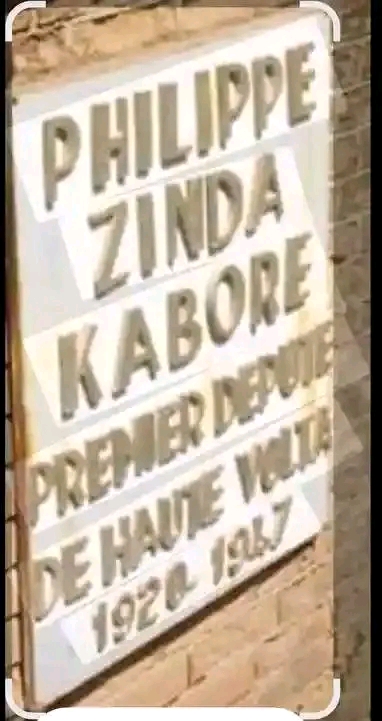 PHILIPPE
ZINDA
KABORE
PREMIER DEPUTE
DE HAUTE VOLTA
1920-1947